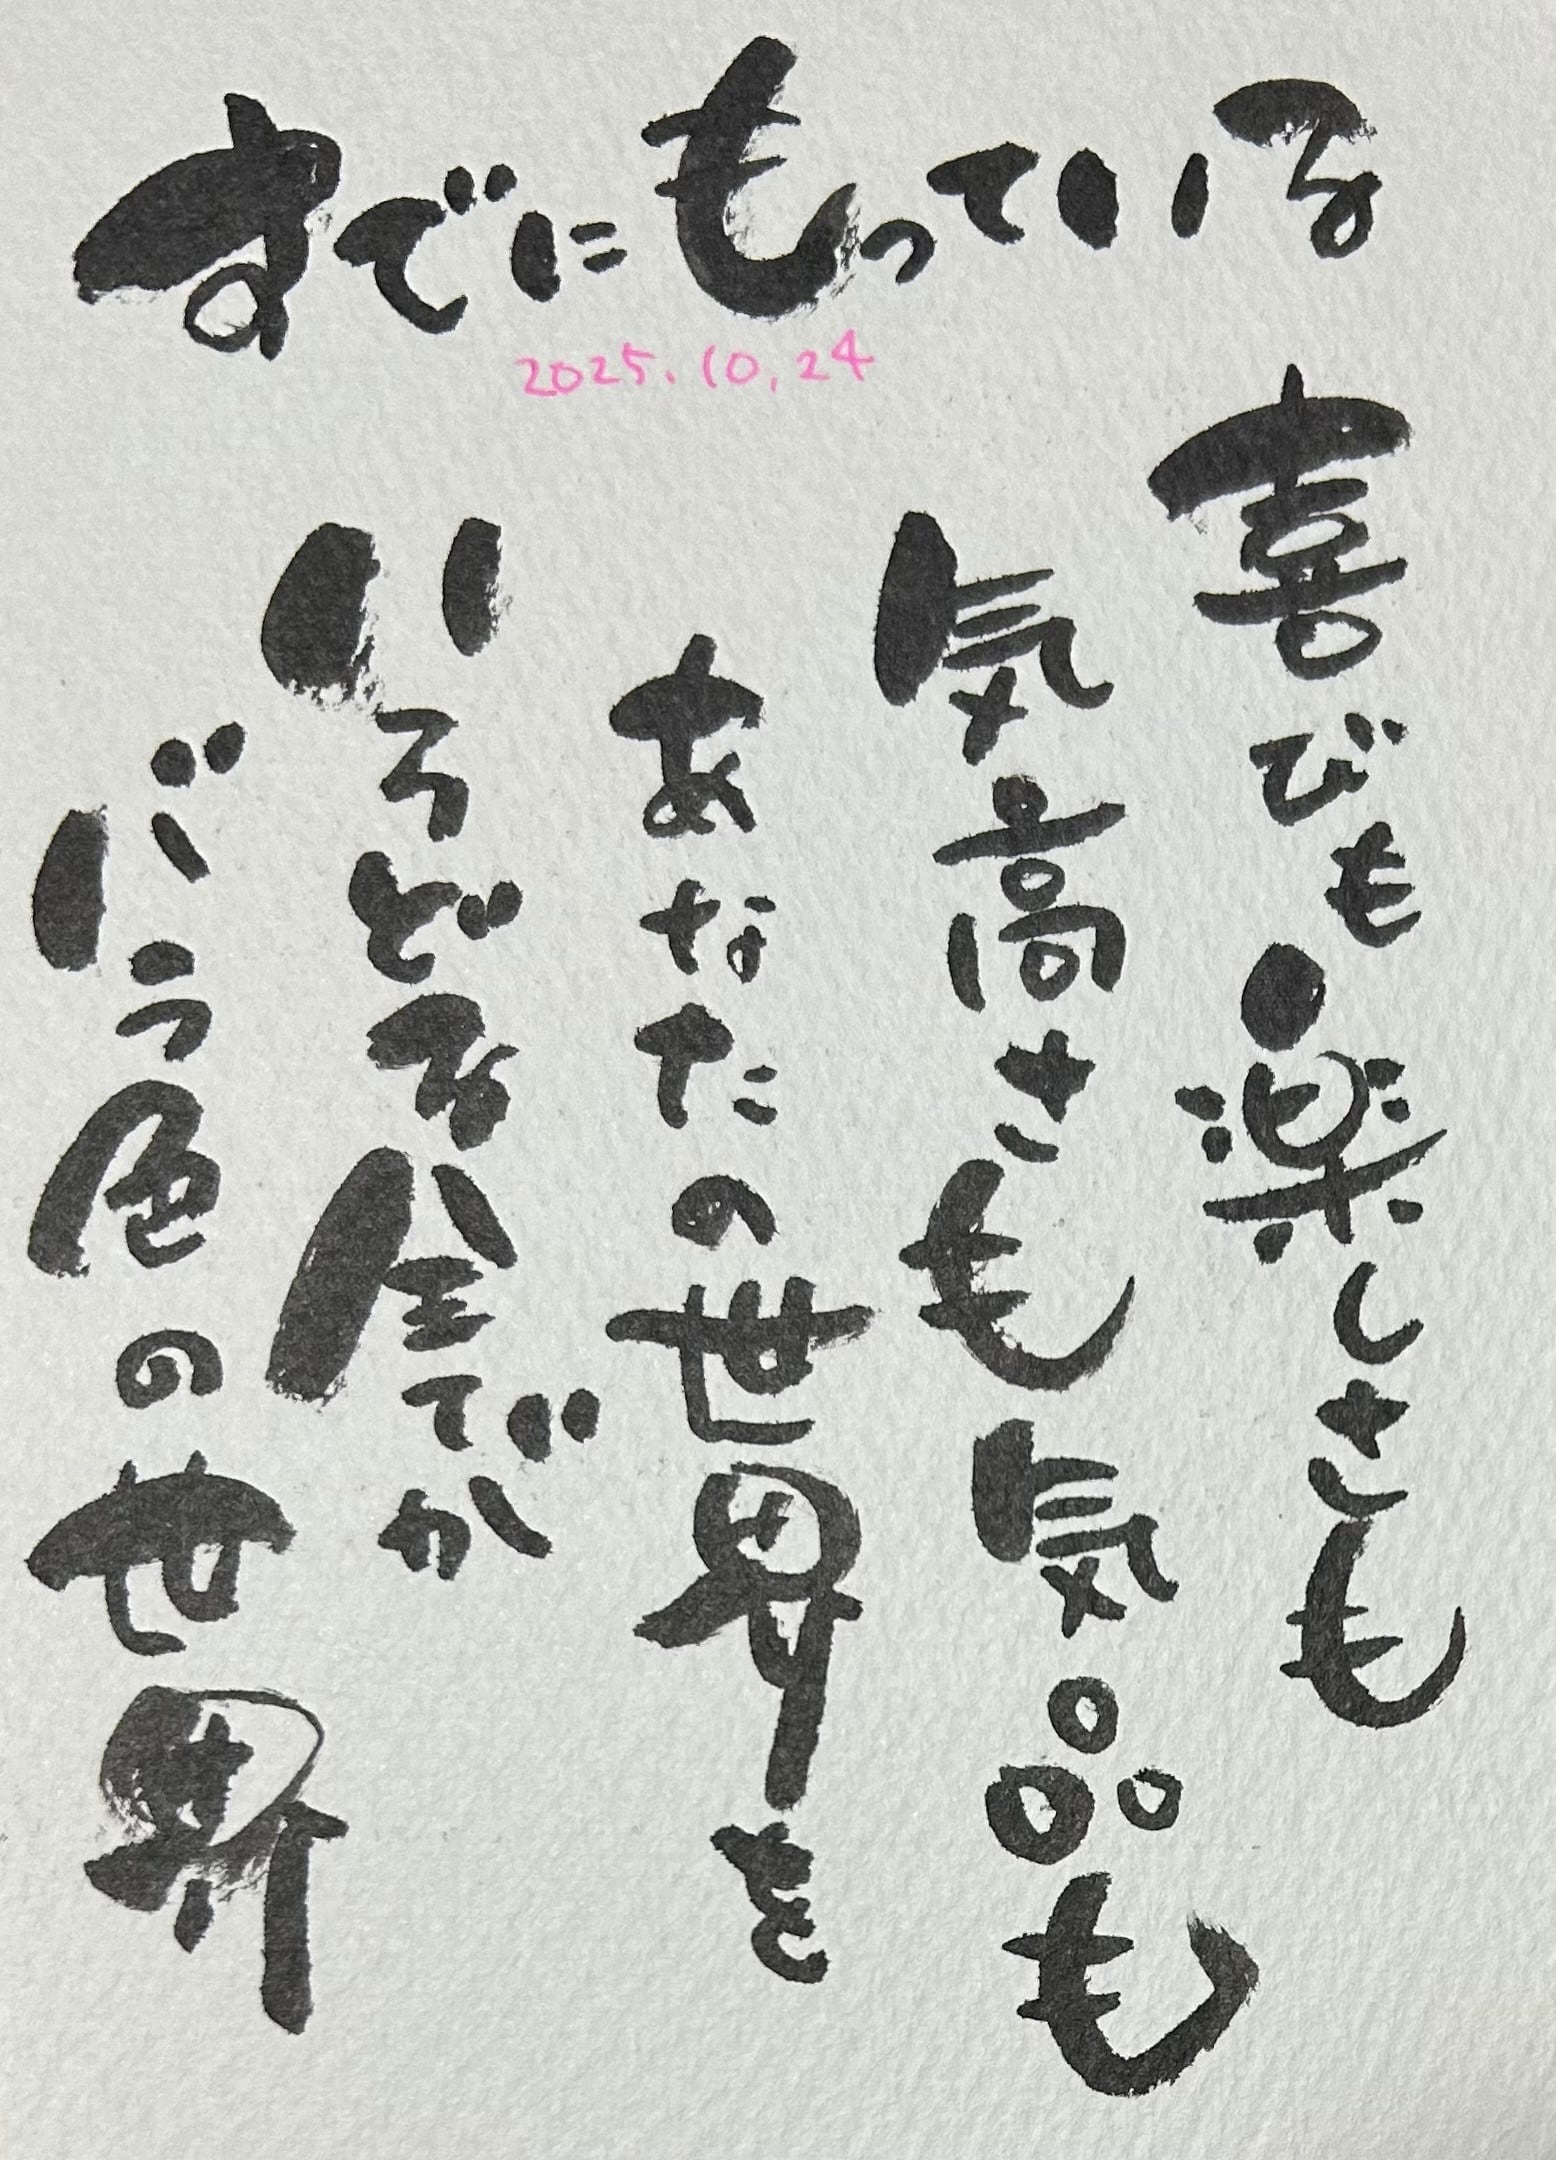 すでにもっている
2025.10.24
喜びも楽しさも
気高さも気品も
あなたの世界を
いろどる全てが
バラ色の世界